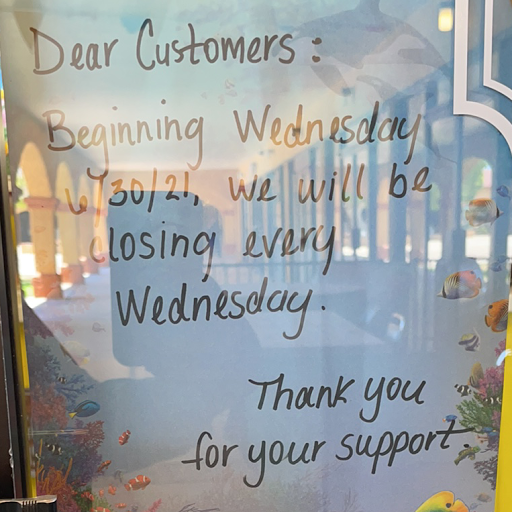 Dear Customers:
Beginning Wednesday
6/30/21, we will be
closing every
Wednesday.
Thank you
for your support.